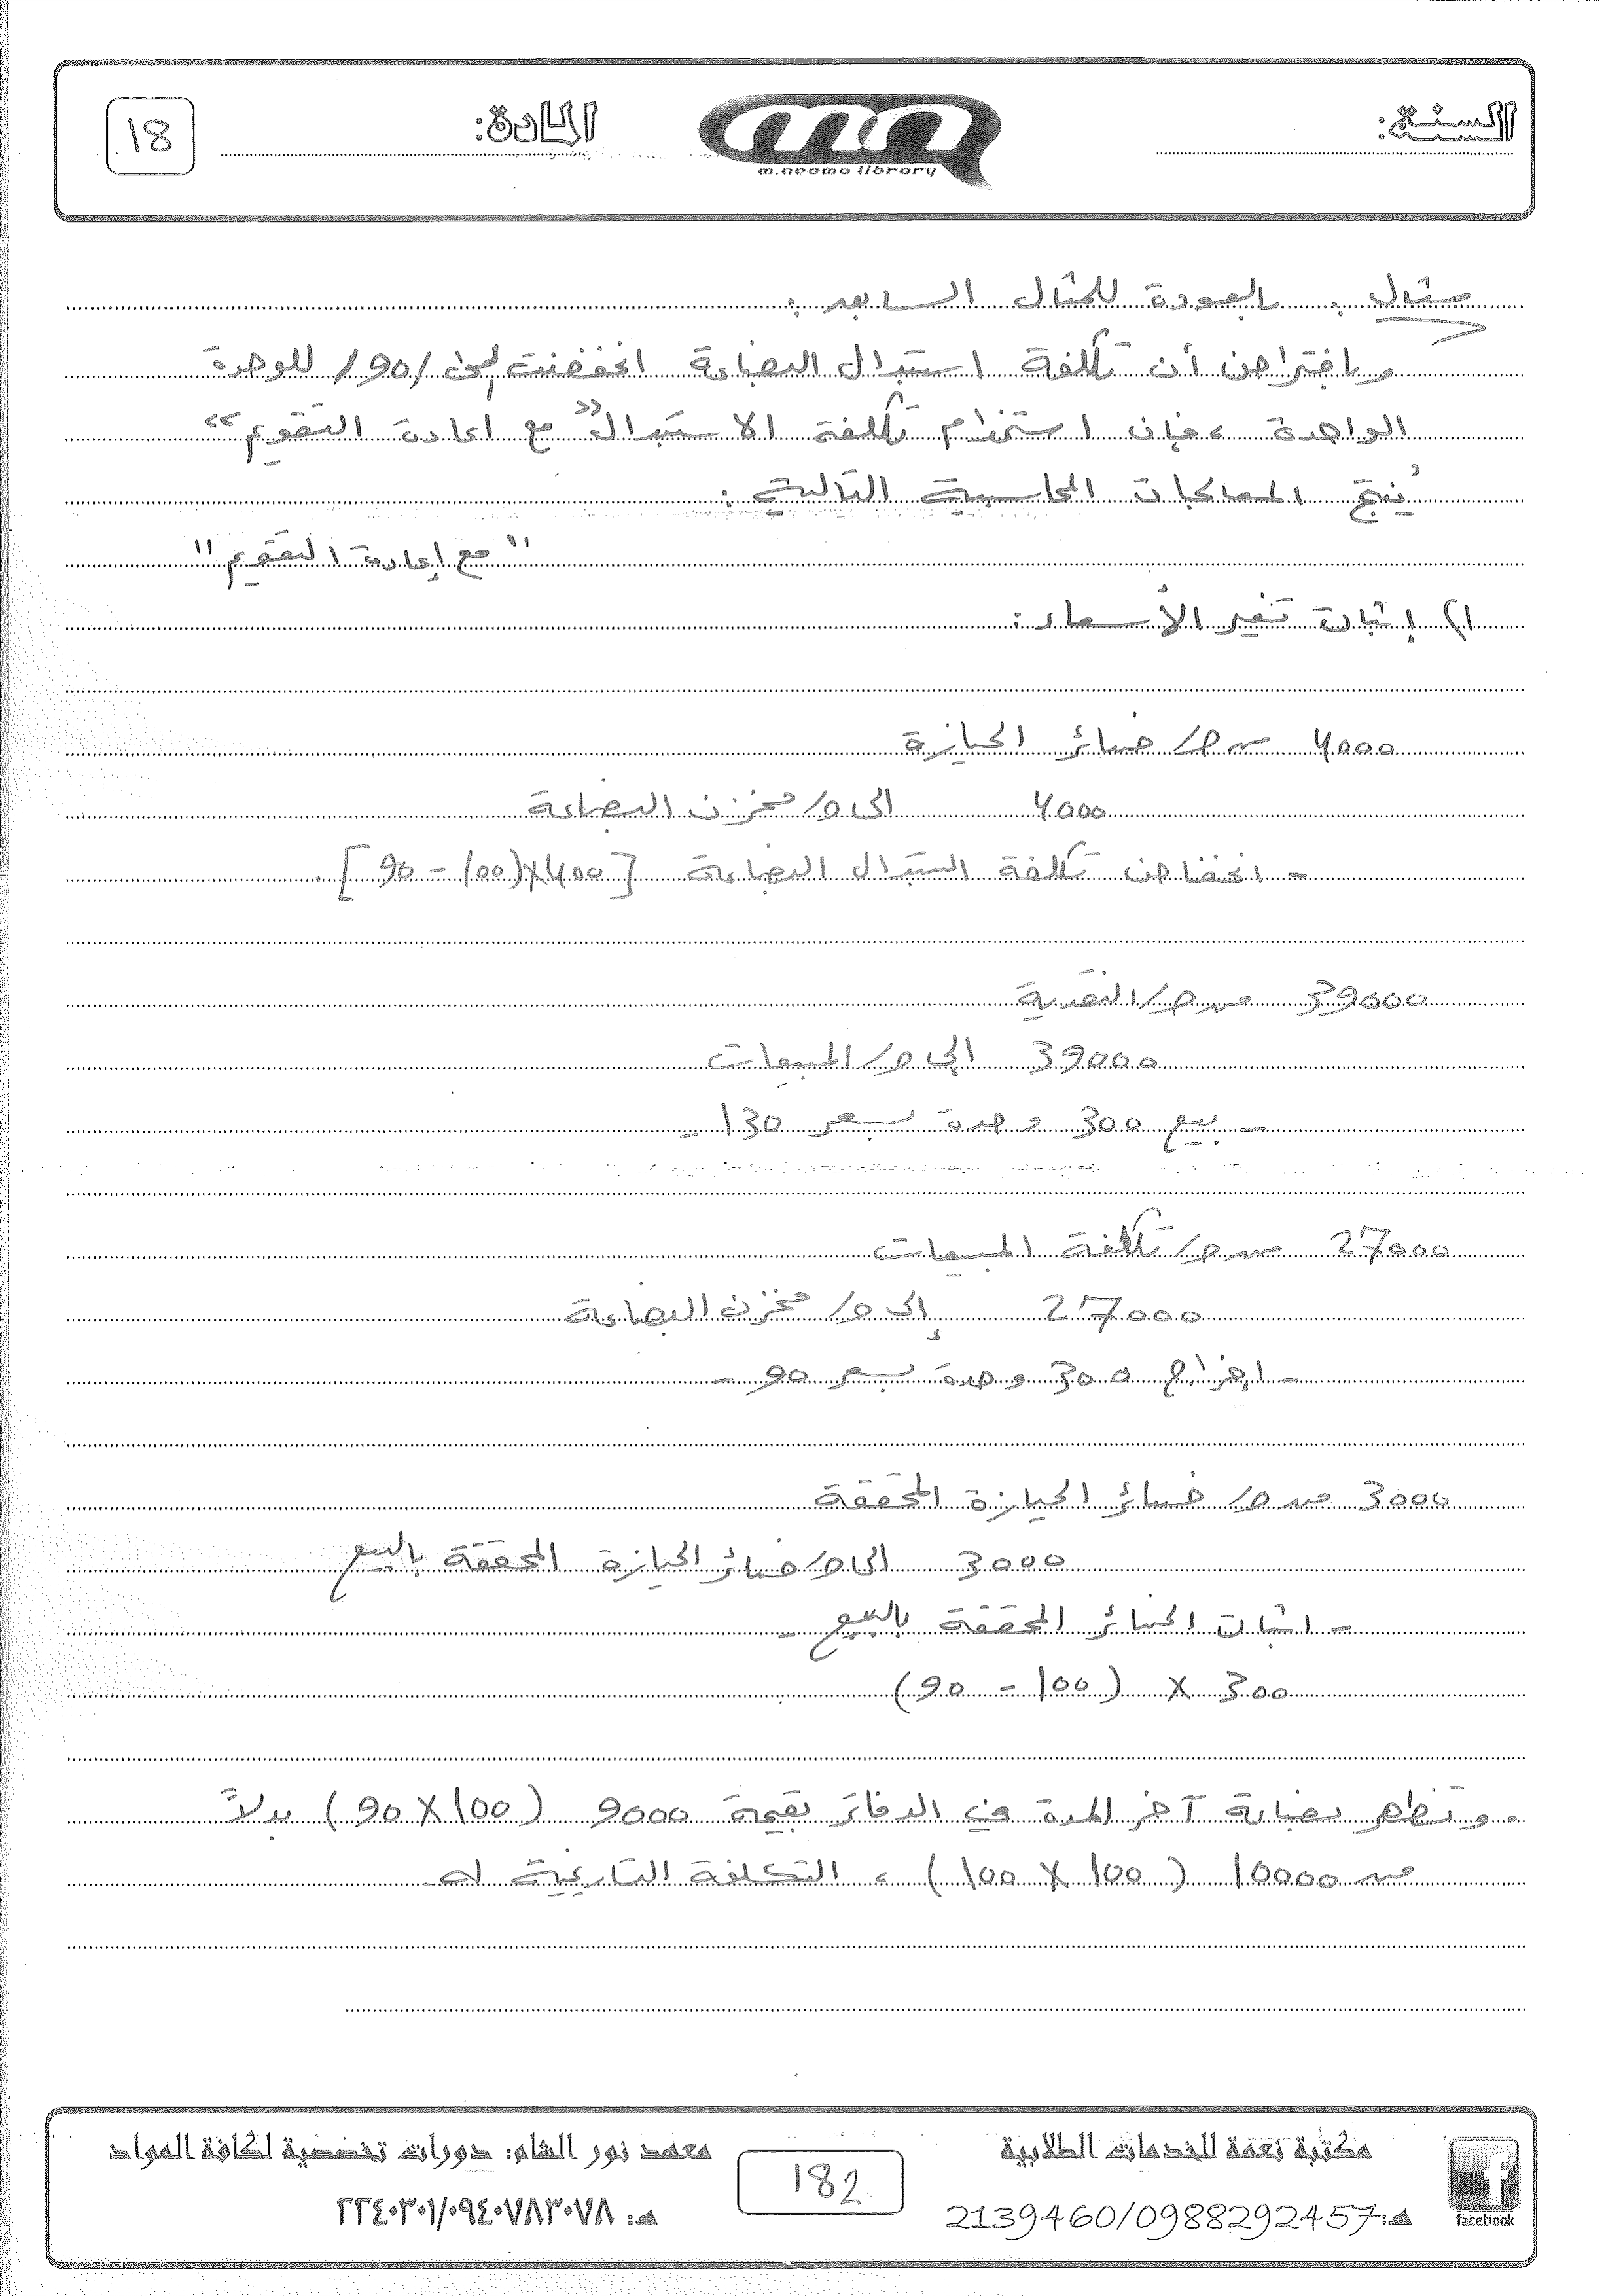 السنة:
m.neama library
المادة:
18
مثال : بالعودة للمثال السابق :
وبافتراض أن تكلفة استبدال البضاعة انخفضت إلى /90/ للوحدة
الواحدة ، فإن استخدام تكلفة الاستبدال "مع اعادة التقويم"
يُنتج المعالجات المحاسبية التالية :
"مع إعادة التقويم"
1) إثبات تغير الأسعار :
4000 من حـ/ خسائر الحيازة
4000 الى حـ/ مخزن البضاعة
- انخفاض تكلفة استبدال البضاعة [400×(100 - 90] .
39000 من حـ/ النقدية
39000 إلى حـ/ المبيعات
- بيع 300 وحدة بسعر 130 -
27000 من حـ/ تكلفة المبيعات
27000 إلى حـ/ مخزن البضاعة
- اخراج 300 وحدة بسعر 90 -
3000 من حـ/ خسائر الحيازة المحققة
3000 الى حـ/ خسائر الحيازة المحققة بالبيع
- اثبات الخسائر المحققة بالبيع -
300 × (100 - 90)
. وتظهر بضاعة آخر المدة في الدفاتر بقيمة 9000 (100×90) بدلاً
من 10000 (100 × 100) ، التكلفة التاريخية له.
مكتبة نعمة للخدمات الطلابية
هـ:2139460/0988292457
facebook
182
معهد نور الشام: دورات تخصصية لكافة المواد
هـ: ٢٢٤٠٣٠١/٠٩٤٠٧٨٣٠٧٨